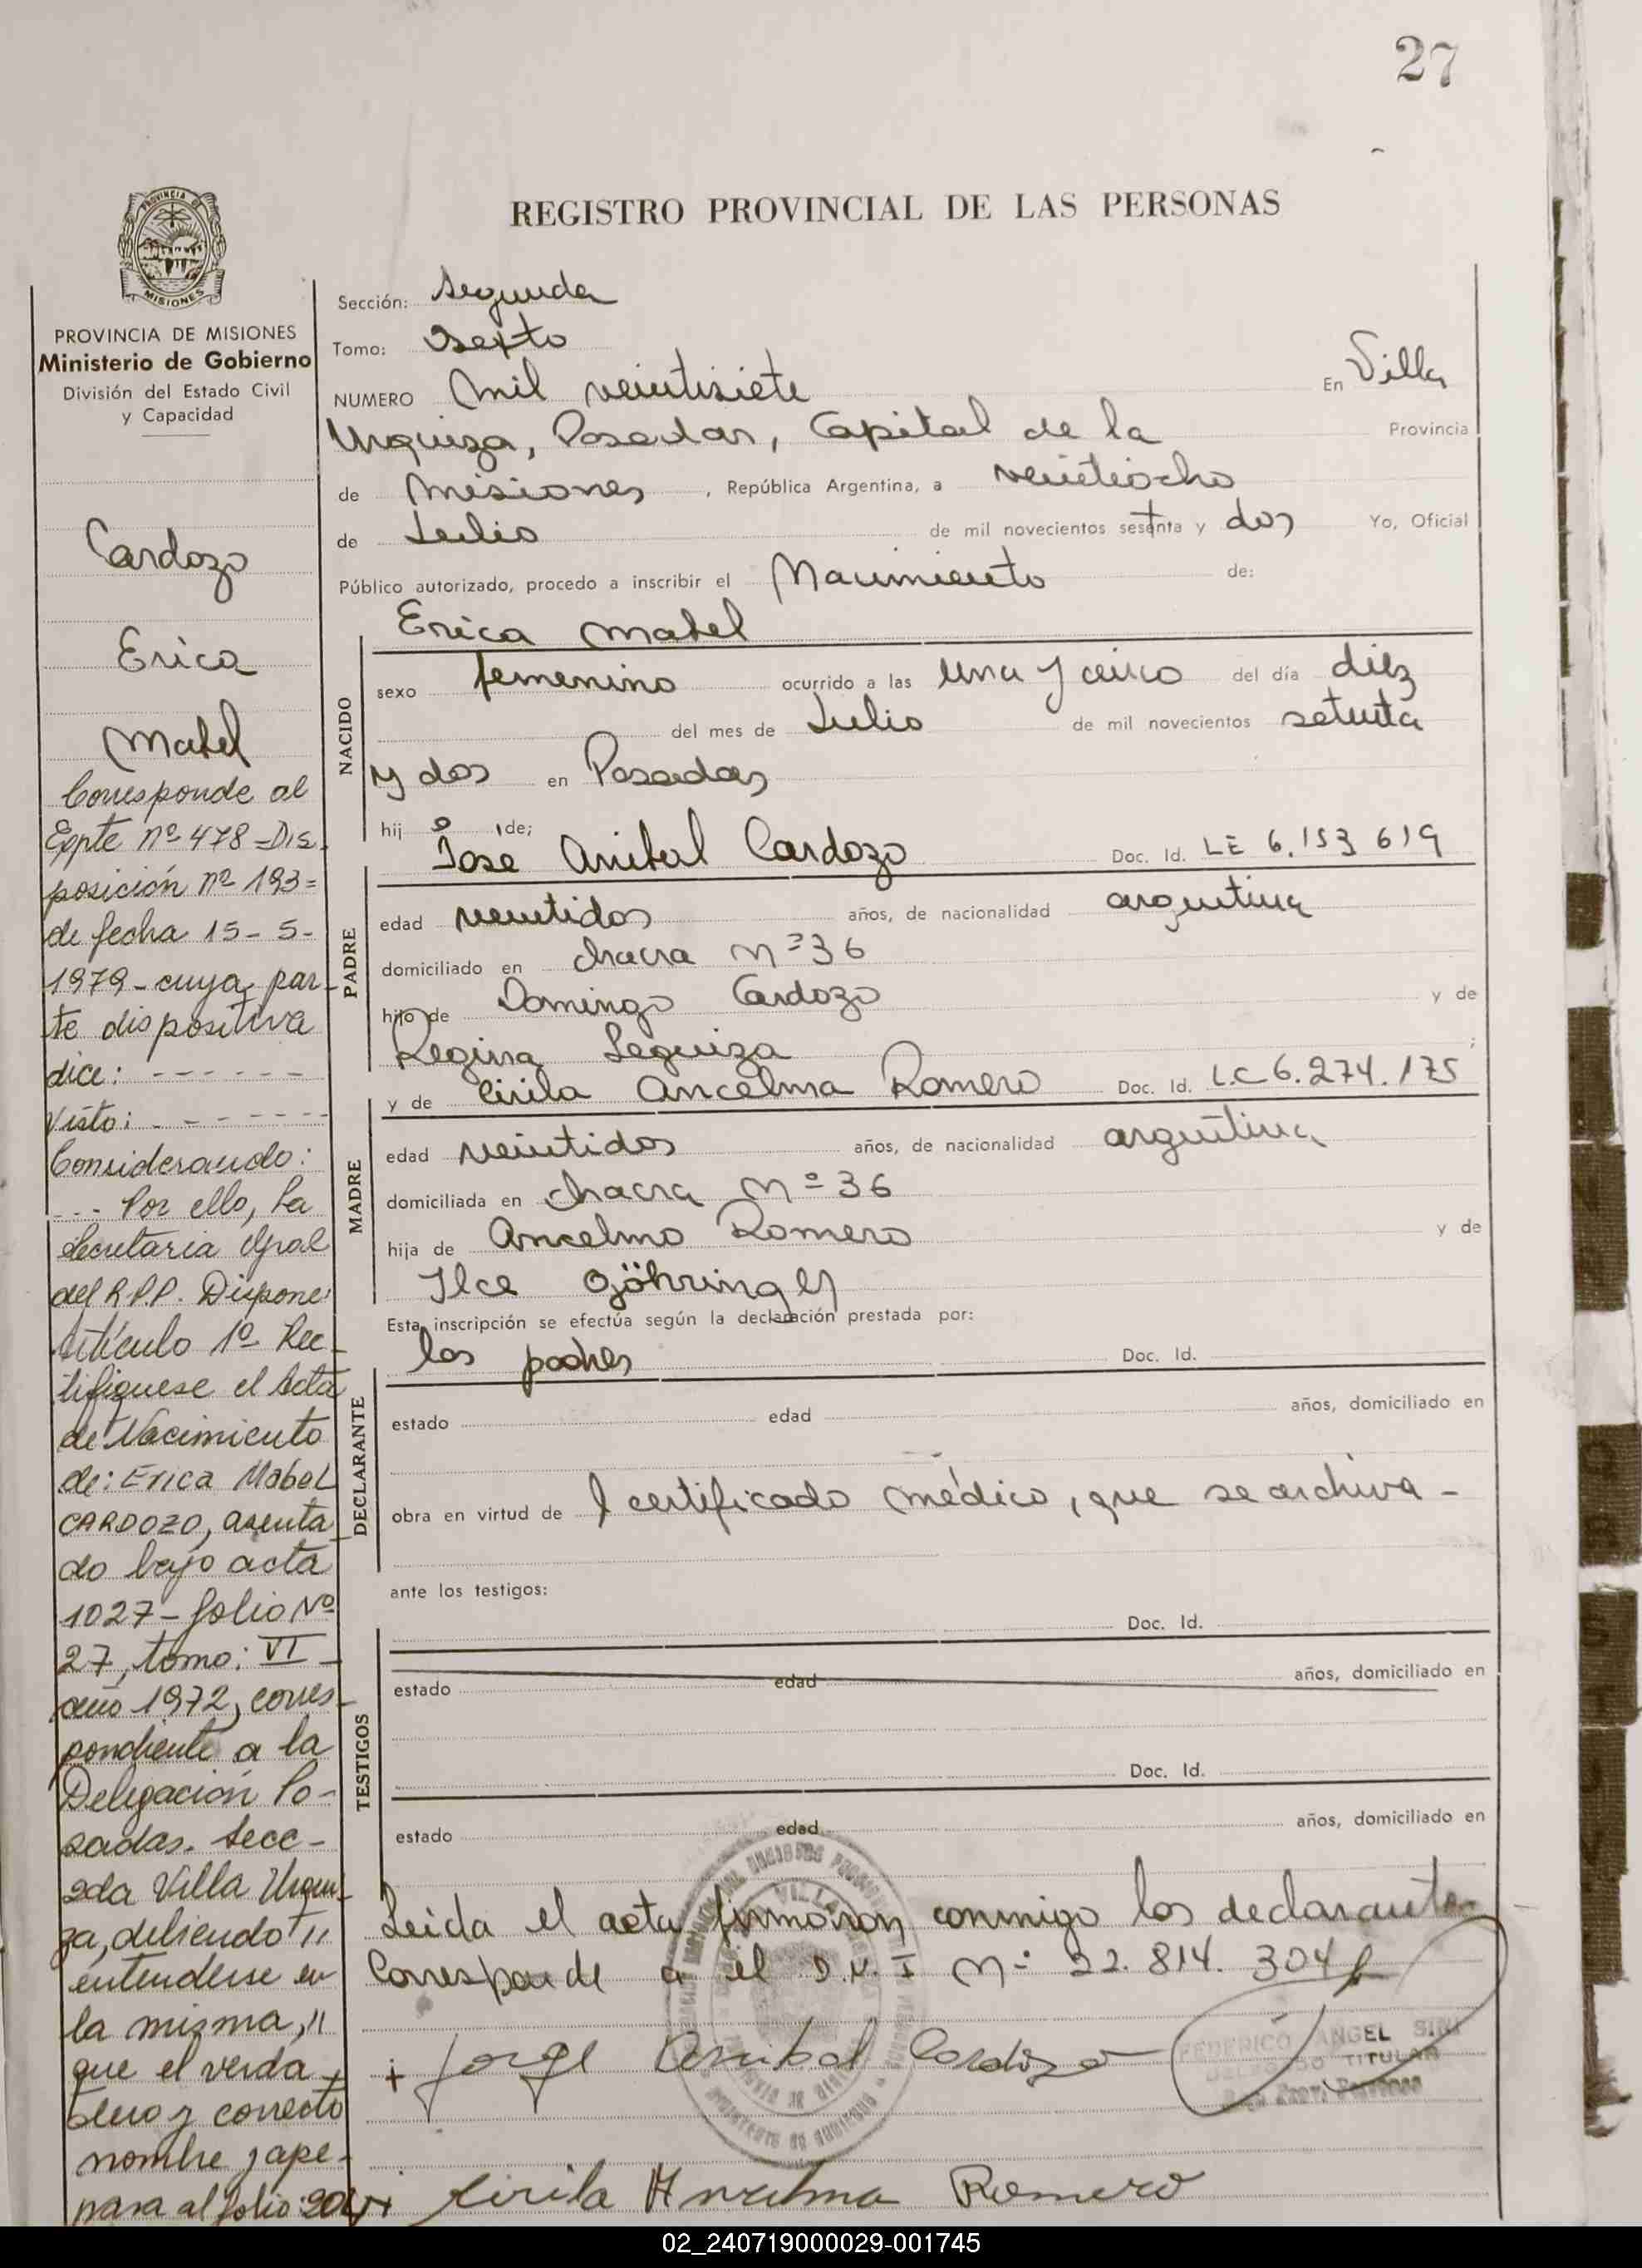 27
REGISTRO PROVINCIAL DE LAS PERSONAS
PROVINCIA DE
MISIONES
PROVINCIA DE MISIONES
Ministerio de Gobierno
División del Estado Civil
y Capacidad
Cardozo
Erica
Mabel
Corresponde al
Expte nº 478 - Dis
posición nº 193 =
de fecha 15 - 5 -
1979 - cuya par-
te dispositiva
dice: - - - - - -
Visto: - - - - - -
Considerando:
- - - Por ello, La
Secretaria Gral
del R.P.P. Dispone:
Artículo 1º Rec-
tifiquese el Acta
de Nacimiento
de: Erica Mabel
CARDOZO, asenta-
do bajo acta
1027 - folio Nº
27, tomo: VI -
año 1972, corres-
pondiente a la
Delegación Po-
sadas. Secc -
2da Villa Urqui-
za, debiendo "
entenderse en
la misma, "
que el verda-
dero y correcto
nombre y ape-
pasa al folio: 204
Sección: Segunda
Tomo: Sexto
NUMERO Mil veintisiete En Villa
Urquiza, Posadas, Capital de la Provincia
de Misiones, República Argentina, a veintiocho
de Julio de mil novecientos setenta y dos Yo, Oficial
Público autorizado, procedo a inscribir el Nacimiento de:
Erica Mabel
NACIDO
sexo femenino ocurrido a las una y cinco del día diez
del mes de Julio de mil novecientos setenta
y dos en Posadas
hij o de;
Jose Anibal Cardozo Doc. Id. LE 6.153 619
PADRE
edad veintidos años, de nacionalidad argentina
domiciliado en chacra nº 36
hijo de Domingo Cardozo y de
Regina Leguiza ;
y de Cirila Ancelma Romero Doc. Id. L.C 6.274.175
MADRE
edad veintidos años, de nacionalidad argentina
domiciliada en chacra nº 36
hija de Ancelmo Romero y de
Ilce Göhringer
Esta inscripción se efectúa según la declaración prestada por:
los padres Doc. Id.
DECLARANTE
estado edad años, domiciliado en
obra en virtud de l certificado médico, que se archiva -
ante los testigos:
Doc. Id.
TESTIGOS
estado edad años, domiciliado en
Doc. Id.
estado edad años, domiciliado en
Leida el acta firmaron conmigo los declarantes
Corresponde a el D.N.I Nº 22.814.304
+ Jorge Anibal Cardozo
FEDERICO ANGEL SINI
TITULAR
Cirila Anzelma Romero
02_240719000029-001745